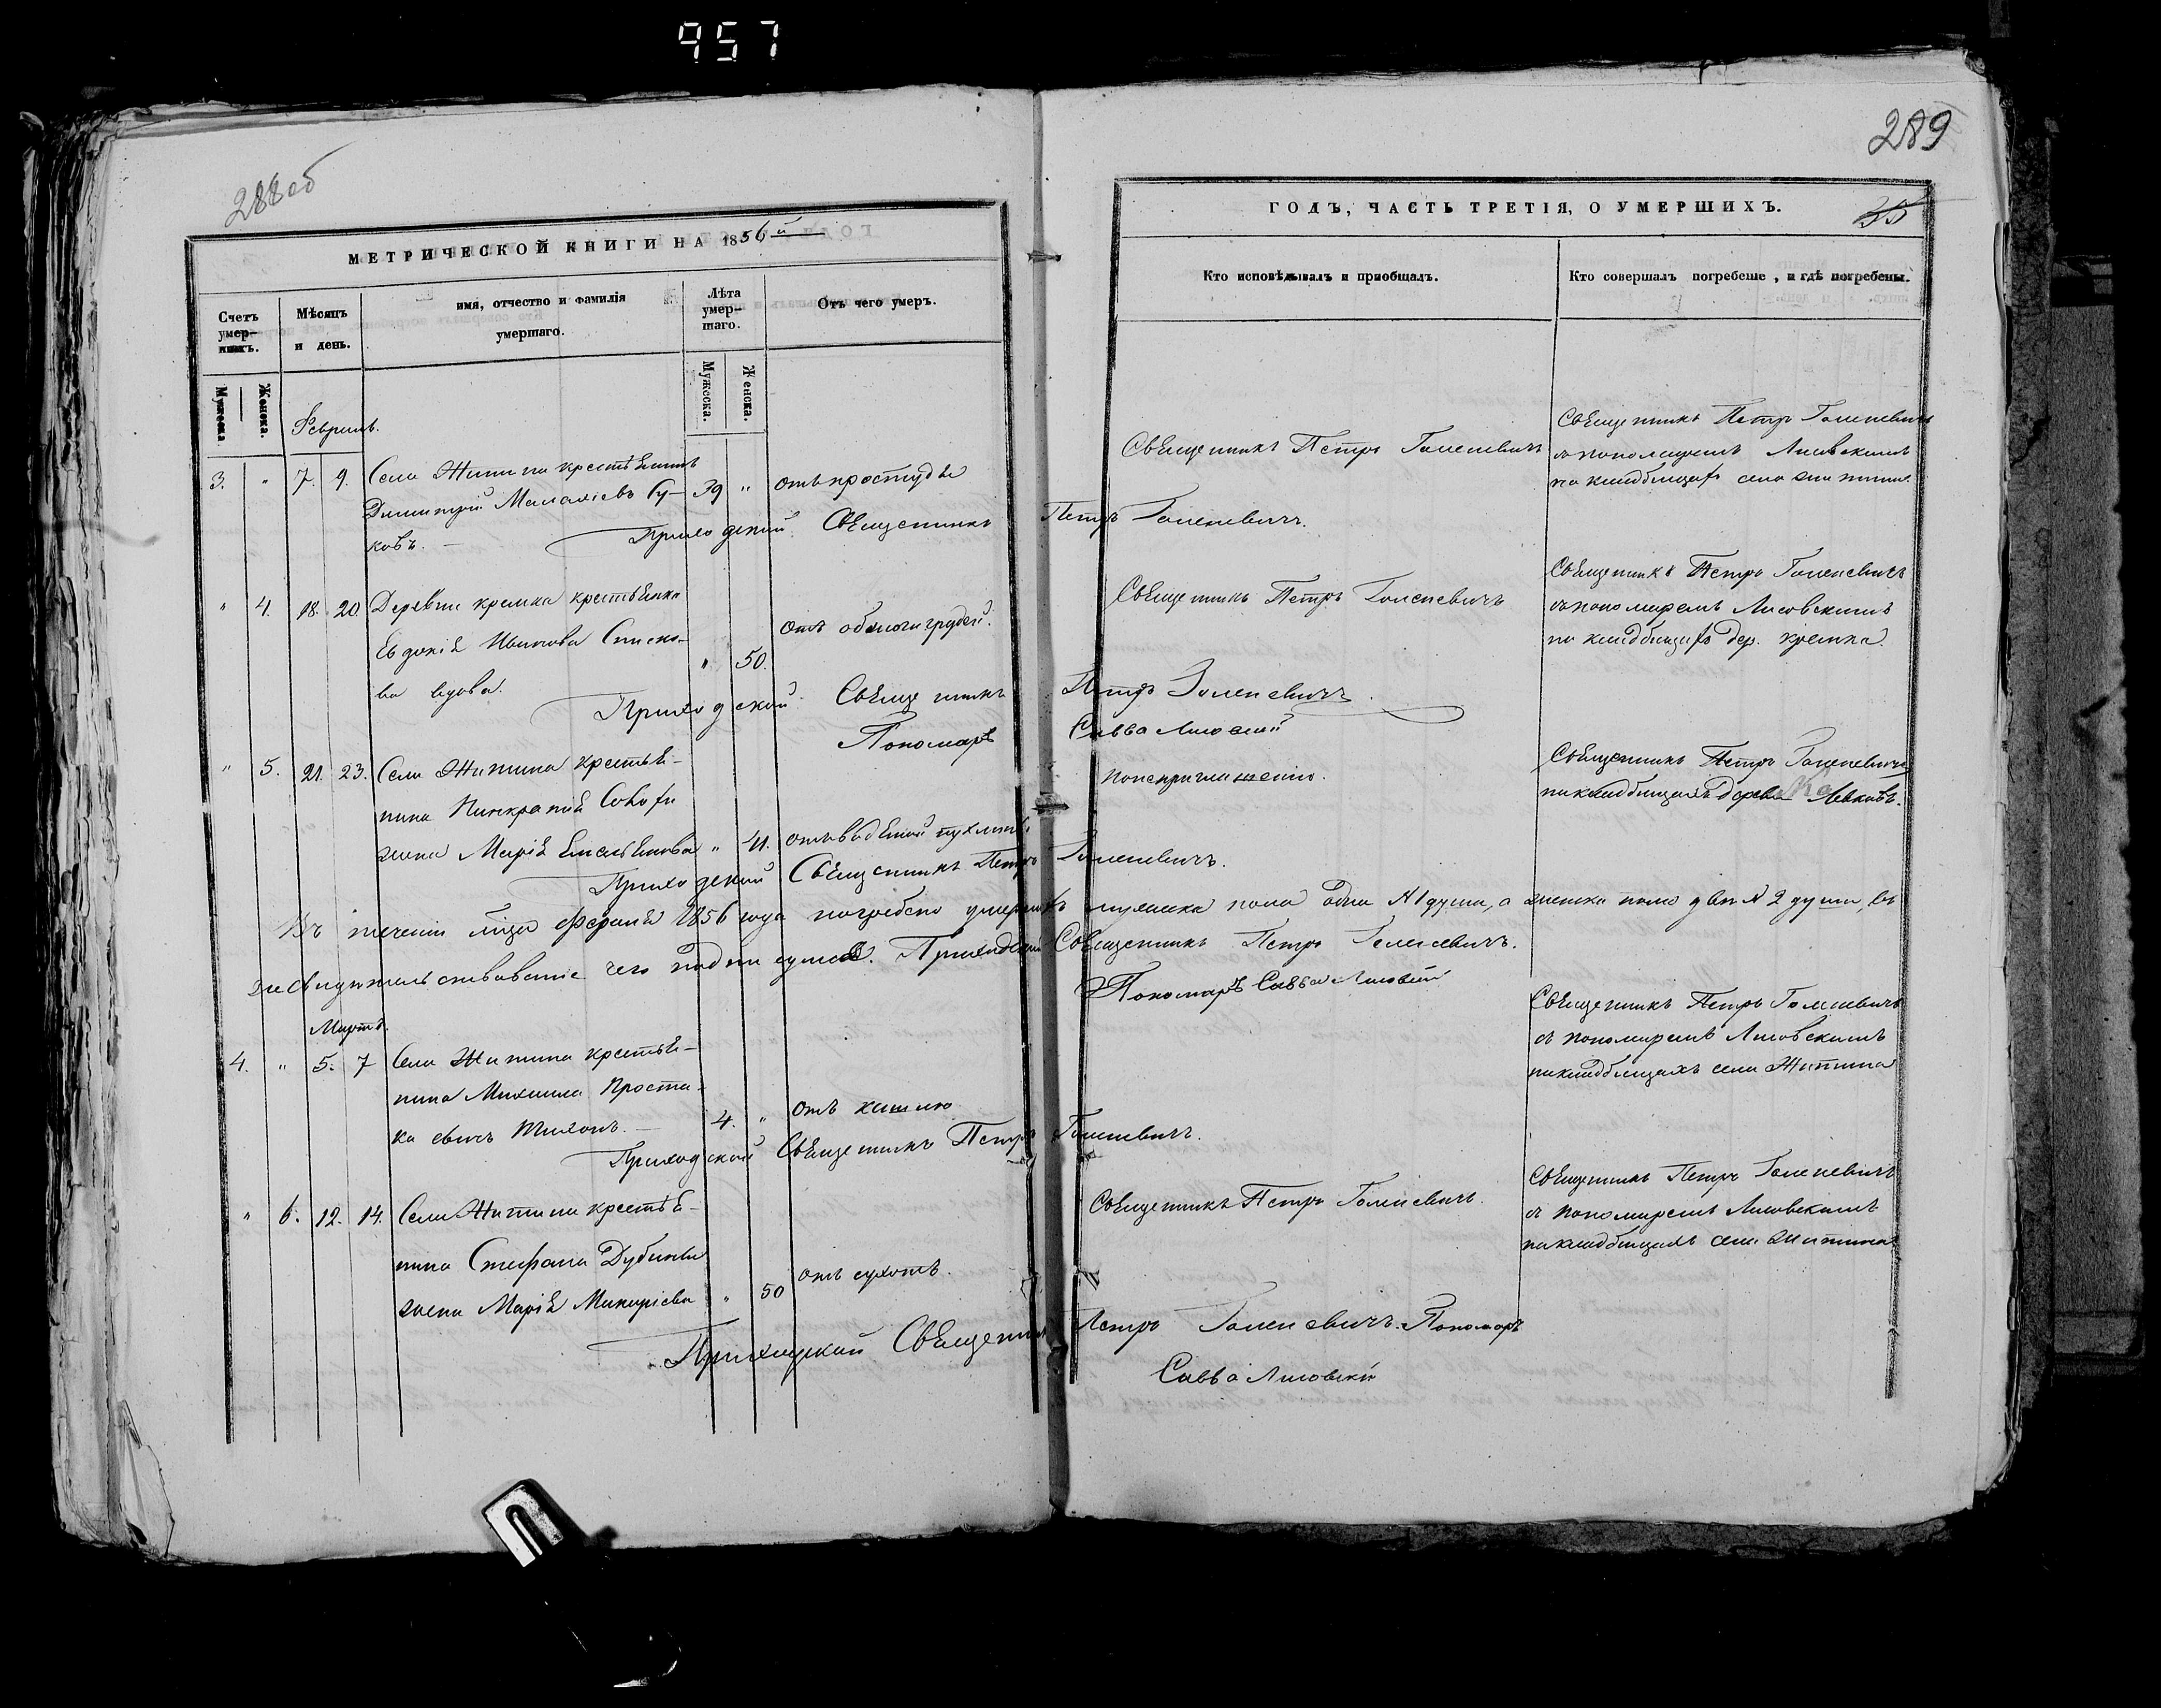 957
288об
МЕТРИЧЕСКОЙ КНИГИ НА 1856й
Счетъ умер-шихъ.
Мѣсяцъ и день.
имя, отчество и фамилія умершаго.
Лѣта умер-шаго.
Отъ чего умеръ.
Мужеска.
Женска.
Мужеска.
Женска.
Февраль.
3. " 7. 9. Села Житина крестьянинъ
Димитрій Малахіевъ Су- 39 " отъ простуды
ковъ. —
Приходскій Священникъ Петръ Голеневичъ.
" 4. 18. 20 Деревни кремка крестьянка
Евдокія Иванова
ва вдова. " 50. отъ грудей.
Приходской Священникъ Петръ Голеневичъ.
Пономарь Савва Лисовскій
" 5. 21. 23. Села Житина крестья-
нина Панкратія
жена Марія Емельянова " 41. отъ водяной пухлины
Приходской Священникъ Петръ Голеневичъ.
Въ теченіи февраля 1856 года погребено умершихъ мужеска пола одна №1 душа, а женска пола двѣ №2 души, въ
засвидѣтельствованіе чего подписуемся. Приходскій Священникъ Петръ Голеневичъ.
Пономарь Савва Лисовскій
Мартъ.
4. " 5. 7 Села Житина крестья-
нина Михаила Проста-
ка сынъ Тихонъ. — 4. " отъ кашлю
Приходской Священникъ Петръ Голеневичъ.
" 6. 12. 14. Села Житина крестья-
нина Стефана Дубины
жена Марія Макаріева " 50 отъ сухотъ.
Приходской Священникъ Петръ Голеневичъ. Пономарь
Савва Лисовскій
289
ГОДЪ, ЧАСТЬ ТРЕТІЯ, О УМЕРШИХЪ.
Кто исповѣдывалъ и пріобщалъ.
Кто совершалъ погребеніе, и гдѣ погребены.
Священникъ Петръ Голеневичъ
Священникъ Петръ Голеневичъ
съ пономаремъ Лисовскимъ
на кладбищахъ села Житина.
Священникъ Петръ Голеневичъ
Священникъ Петръ Голеневичъ
съ пономаремъ Лисовскимъ
на кладбищахъ дер. кремка.
Священникъ Петръ Голеневичъ
на кладбищахъ Левковъ.
Священникъ Петръ Голеневичъ
съ пономаремъ Лисовскимъ
на кладбищахъ села Житина
Священникъ Петръ Голеневичъ.
Священникъ Петръ Голеневичъ
съ пономаремъ Лисовскимъ
на кладбищахъ села Житина